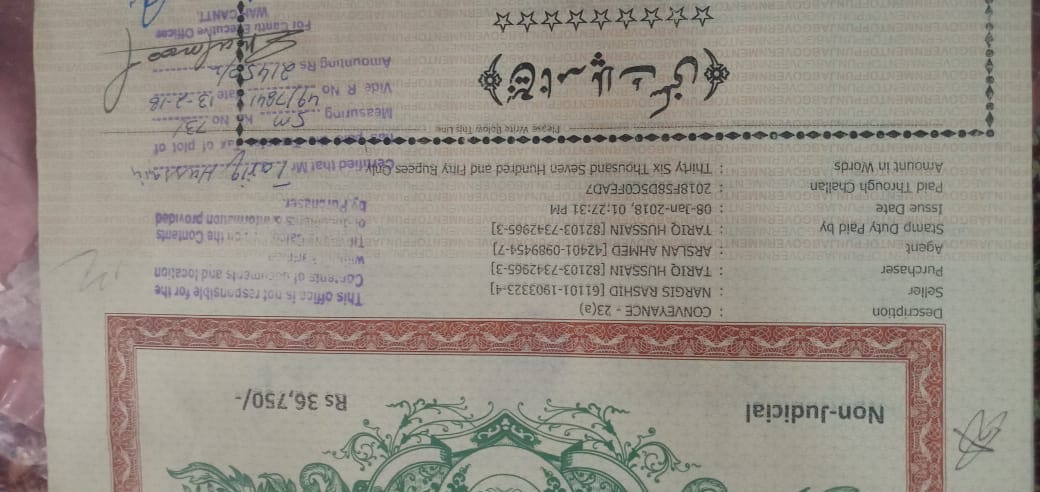 Non-Judicial
Rs 36,750/-
Description : CONVEYANCE - 23(a)
Seller : NARGIS RASHID [61101-1903323-4]
Purchaser : TARIQ HUSSAIN [82103-7342965-3]
Agent : ARSLAN AHMED [42401-0989454-7]
Stamp Duty Paid by : TARIQ HUSSAIN [82103-7342965-3]
Issue Date : 08-Jan-2018, 01:27:31 PM
Paid Through Challan : 2018F58D5C0FEAD7
Amount in Words : Thirty Six Thousand Seven Hundred and Fifty Rupees Only
Please Write Below This Line
This office is not responsible for the
Contents of documents and location
on the Contents
documents & information provided
by Purchaser.
Certified that Mr Tariq Hussain
has paid the Tax of plot of
Measuring 5m Kh No 731
Vide R No 49/7841 Date 13-2-18
Amounting Rs 21450/-
For Cantt Executive Officer
WAH CANTT.